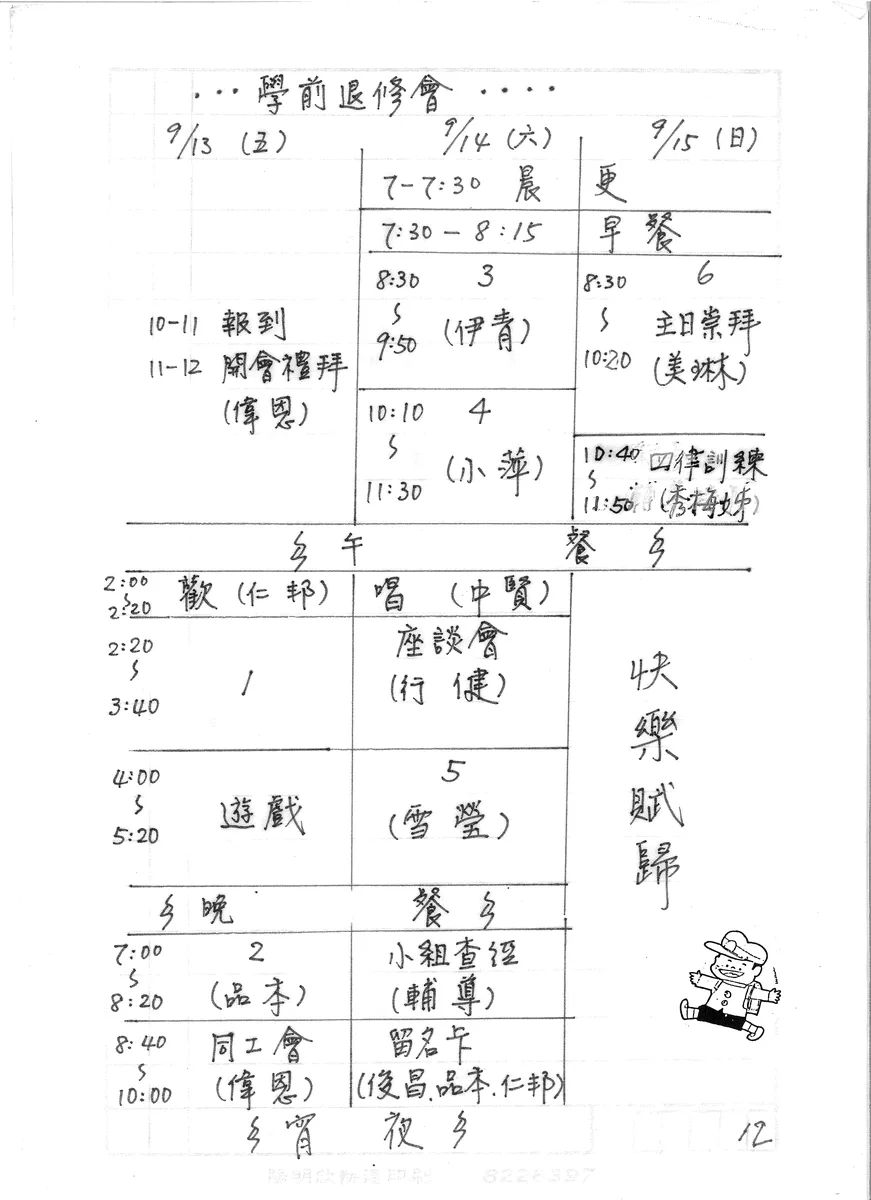 ‧‧‧學前退修會‧‧‧‧
9/13 (五) 9/14 (六) 9/15 (日)
7-7:30 晨 更
7:30-8:15 早餐
8:30~9:50 3 (伊青)
8:30~10:20 6 主日崇拜 (美琳)
10-11 報到
11-12 開會禮拜 (偉恩)
10:10~11:30 4 (小萍)
10:40~11:50 四律訓練 (秀梅姊)
午 餐
2:00~2:20 歡(仁邦) 唱 (中賢)
2:20~3:40 1 座談會 (行健)
快樂賦歸
4:00~5:20 遊戲 5 (雪瑩)
晚 餐
7:00~8:20 2 (品本) 小組查經 (輔導)
8:40~10:00 同工會 (偉恩) 留名卡 (俊昌.品本.仁邦)
宵 夜
12